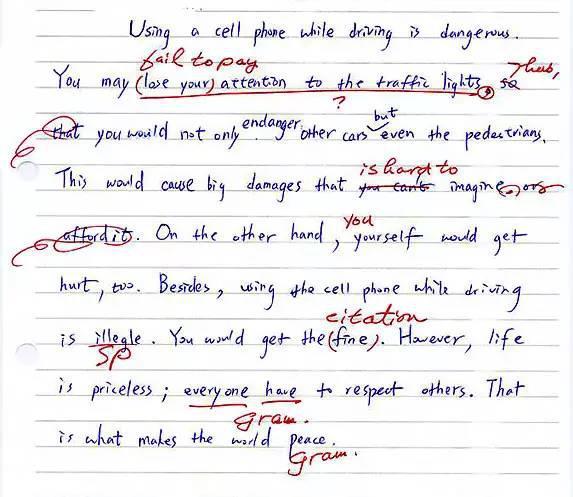 Using a cell phone while driving is dangerous.
fail to pay
You may (lose your) attention to the traffic lights, so Thus,
?
that you would not only endanger other cars but even the pedestrians.
is hard to
This would cause big damages that you can't imagine, or
you
afford it. On the other hand, yourself would get
hurt, too. Besides, using the cell phone while driving
citation
is illegle. You would get the (fine). However, life
SP
is priceless; everyone have to respect others. That
gram.
is what makes the world peace.
Gram.